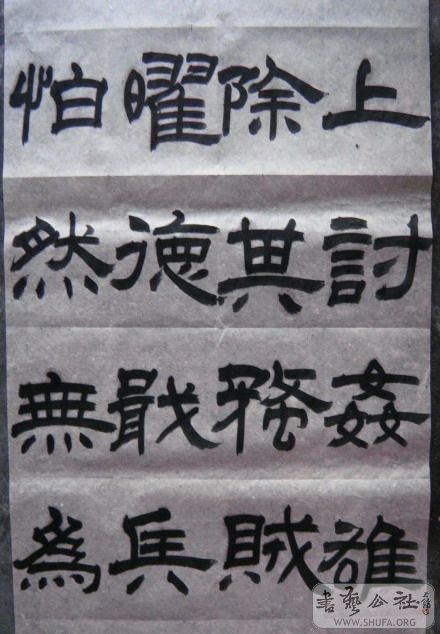 上討姦雄
除其蝥賊
曜德戢兵
怕然無為
書藝公社
WWW.SHUFA.ORG